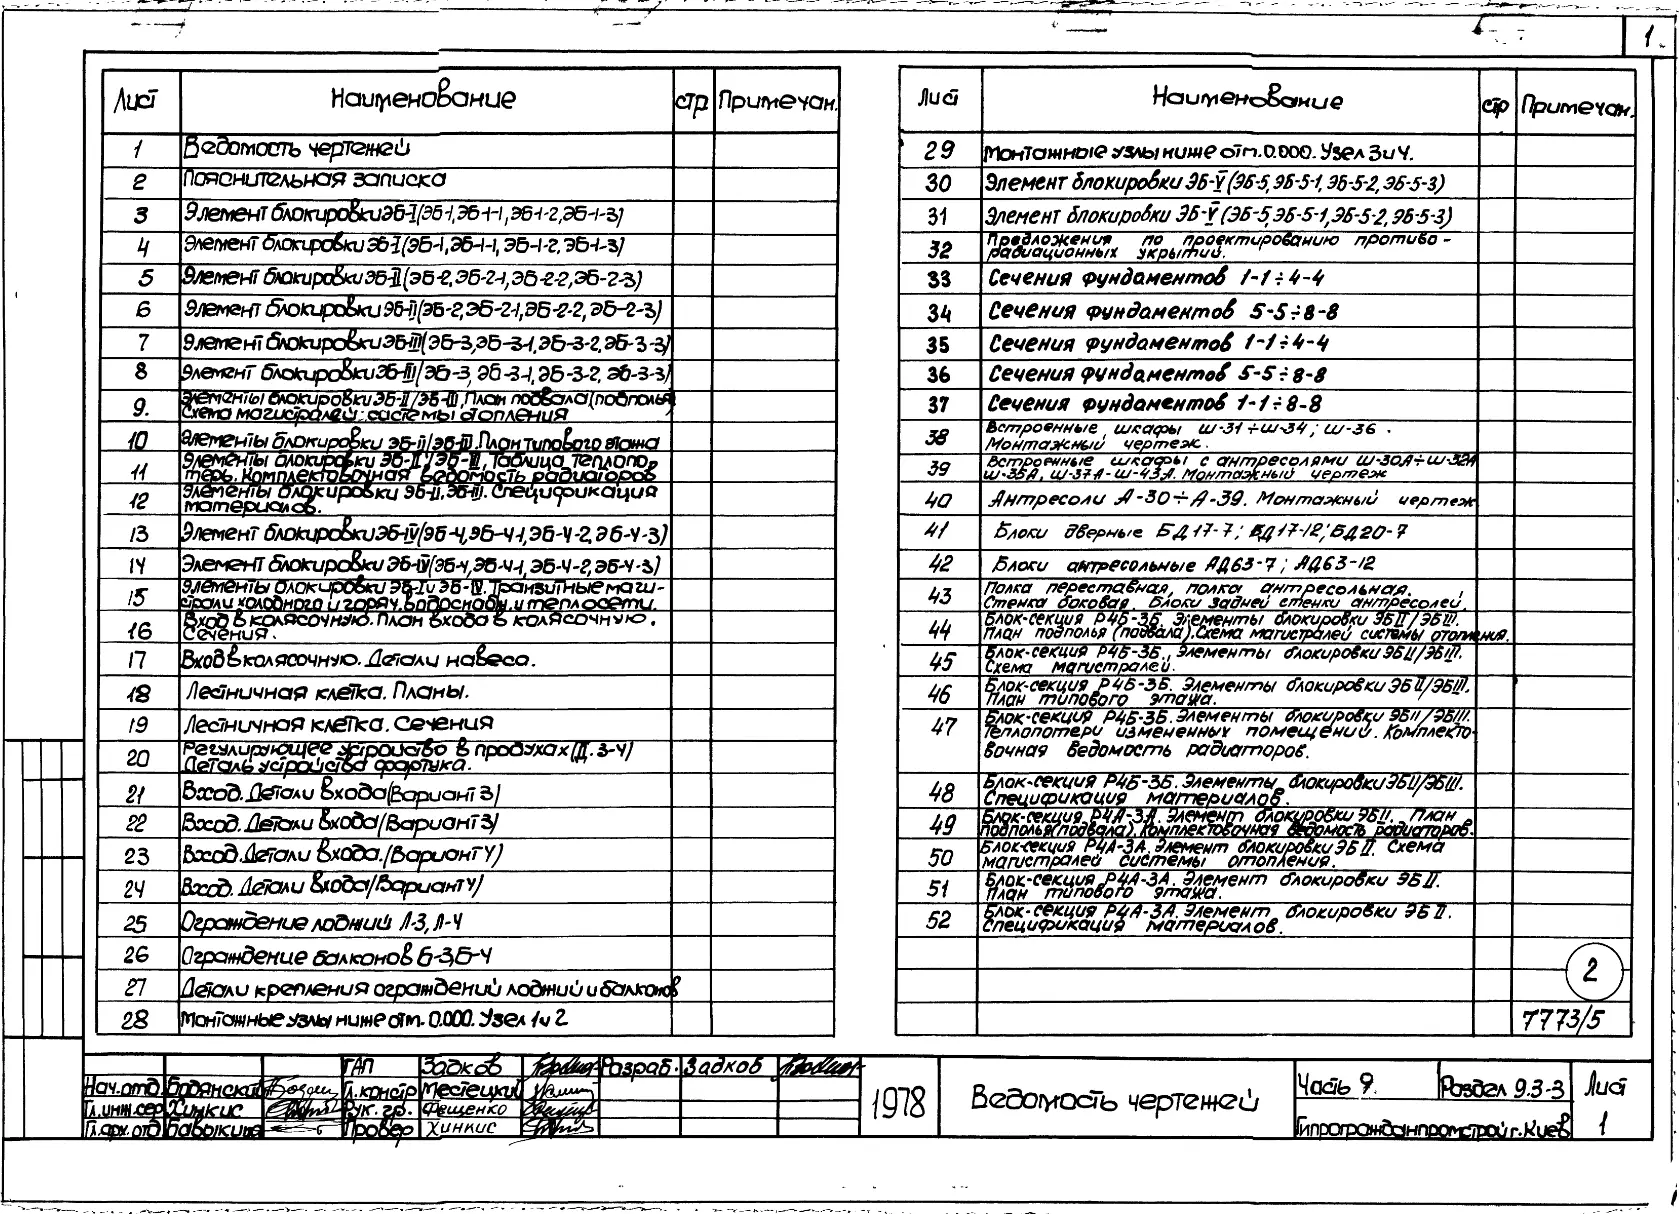 1
Лист Наименование стр Примечан.
1 Ведомость чертежей
2 Пояснительная записка
3 Элемент блокировки ЭБ-I (ЭБ-1, ЭБ-1-1, ЭБ-1-2, ЭБ-1-3)
4 Элемент блокировки ЭБ-I (ЭБ-1, ЭБ-1-1, ЭБ-1-2, ЭБ-1-3)
5 Элемент блокировки ЭБ-II (ЭБ-2, ЭБ-2-1, ЭБ-2-2, ЭБ-2-3)
6 Элемент блокировки ЭБ-II (ЭБ-2, ЭБ-2-1, ЭБ-2-2, ЭБ-2-3)
7 Элемент блокировки ЭБ-III (ЭБ-3, ЭБ-3-1, ЭБ-3-2, ЭБ-3-3)
8 Элемент блокировки ЭБ-III (ЭБ-3, ЭБ-3-1, ЭБ-3-2, ЭБ-3-3)
9. Элементы блокировки ЭБ-II/ЭБ-III. План подвала (подполья)
Схема магистралей системы отопления
10 Элементы блокировки ЭБ-II/ЭБ-III. План типового этажа
11 Элементы блокировки ЭБ-II/ЭБ-III. Таблица теплопо-
терь. Комплектовочная ведомость радиаторов
12 Элементы блокировки ЭБ-II, ЭБ-III. Спецификация
материалов.
13 Элемент блокировки ЭБ-IV (ЭБ-4, ЭБ-4-1, ЭБ-4-2, ЭБ-4-3)
14 Элемент блокировки ЭБ-IV (ЭБ-4, ЭБ-4-1, ЭБ-4-2, ЭБ-4-3)
15 Элементы блокировки ЭБ-I и ЭБ-IV. Транзитные маги-
страли холодного и горяч. водоснабж. и теплосети.
16 Вход в колясочную. План входа в колясочную.
Сечения.
17 Вход в колясочную. Детали навеса.
18 Лестничная клетка. Планы.
19 Лестничная клетка. Сечения
20 Регулирующее устройство в продухах (Д. 3-4)
Деталь устройства фартука.
21 Вход. Детали входа (Вариант 3)
22 Вход. Детали входа (Вариант 3)
23 Вход. Детали входа. (Вариант 4)
24 Вход. Детали входа (Вариант 4)
25 Ограждение лоджий Л-3, Л-4
26 Ограждение балконов Б-3, Б-4
27 Детали крепления ограждений лоджий и балконов
28 Монтажные узлы ниже отм. 0.000. Узел 1 и 2
Лист Наименование стр Примечан.
29 Монтажные узлы ниже отм. 0.000. Узел 3 и 4.
30 Элемент блокировки ЭБ-V (ЭБ-5, ЭБ-5-1, ЭБ-5-2, ЭБ-5-3)
31 Элемент блокировки ЭБ-V (ЭБ-5, ЭБ-5-1, ЭБ-5-2, ЭБ-5-3)
32 Предложения по проектированию противо-
радиационных укрытий.
33 Сечения фундаментов 1-1÷4-4
34 Сечения фундаментов 5-5÷8-8
35 Сечения фундаментов 1-1÷4-4
36 Сечения фундаментов 5-5÷8-8
37 Сечения фундаментов 1-1÷8-8
38 Встроенные шкафы Ш-31÷Ш-34; Ш-36.
Монтажный чертеж.
39 Встроенные шкафы с антресолями Ш-30А÷Ш-32А
Ш-35А, Ш-37А-Ш-43А. Монтажный чертеж
40 Антресоли А-30÷А-39. Монтажный чертеж
41 Блоки дверные БД17-7; БД17-12; БД20-7
42 Блоки антресольные АД63-7; АД63-12
43 Полка переставная, полка антресольная.
Стенка боковая. Блоки задней стенки антресолей.
44 Блок-секция Р4Б-3Б. Элементы блокировки ЭБII/ЭБIII.
План подполья (подвала). Схема магистралей системы отопления.
45 Блок-секция Р4Б-3Б. Элементы блокировки ЭБII/ЭБIII.
Схема магистралей.
46 Блок-секция Р4Б-3Б. Элементы блокировки ЭБII/ЭБIII.
План типового этажа.
47 Блок-секция Р4Б-3Б. Элементы блокировки ЭБII/ЭБIII.
Теплопотери измененных помещений. Комплекто-
вочная ведомость радиаторов.
48 Блок-секция Р4Б-3Б. Элементы блокировки ЭБII/ЭБIII.
Спецификация материалов.
49 Блок-секция Р4А-3А. Элемент блокировки ЭБII. План
подполья (подвала). Комплектовочная ведомость радиаторов.
50 Блок-секция Р4А-3А. Элемент блокировки ЭБII. Схема
магистралей системы отопления.
51 Блок-секция Р4А-3А. Элемент блокировки ЭБII.
План типового этажа.
52 Блок-секция Р4А-3А. Элемент блокировки ЭБII.
Спецификация материалов.
2
7773/5
ГАП Задков Разраб. Задков
Нач. отд. Бодянский Гл. констр Местецкий
Гл. инж. сер Хинкис Рук. гр. Фещенко
Гл. арх. отд Бабыкина Провер Хинкис
1978
Ведомость чертежей
Часть 9. Раздел 9.3-3
Гипрогражданпромстрой г. Киев
Лист
1